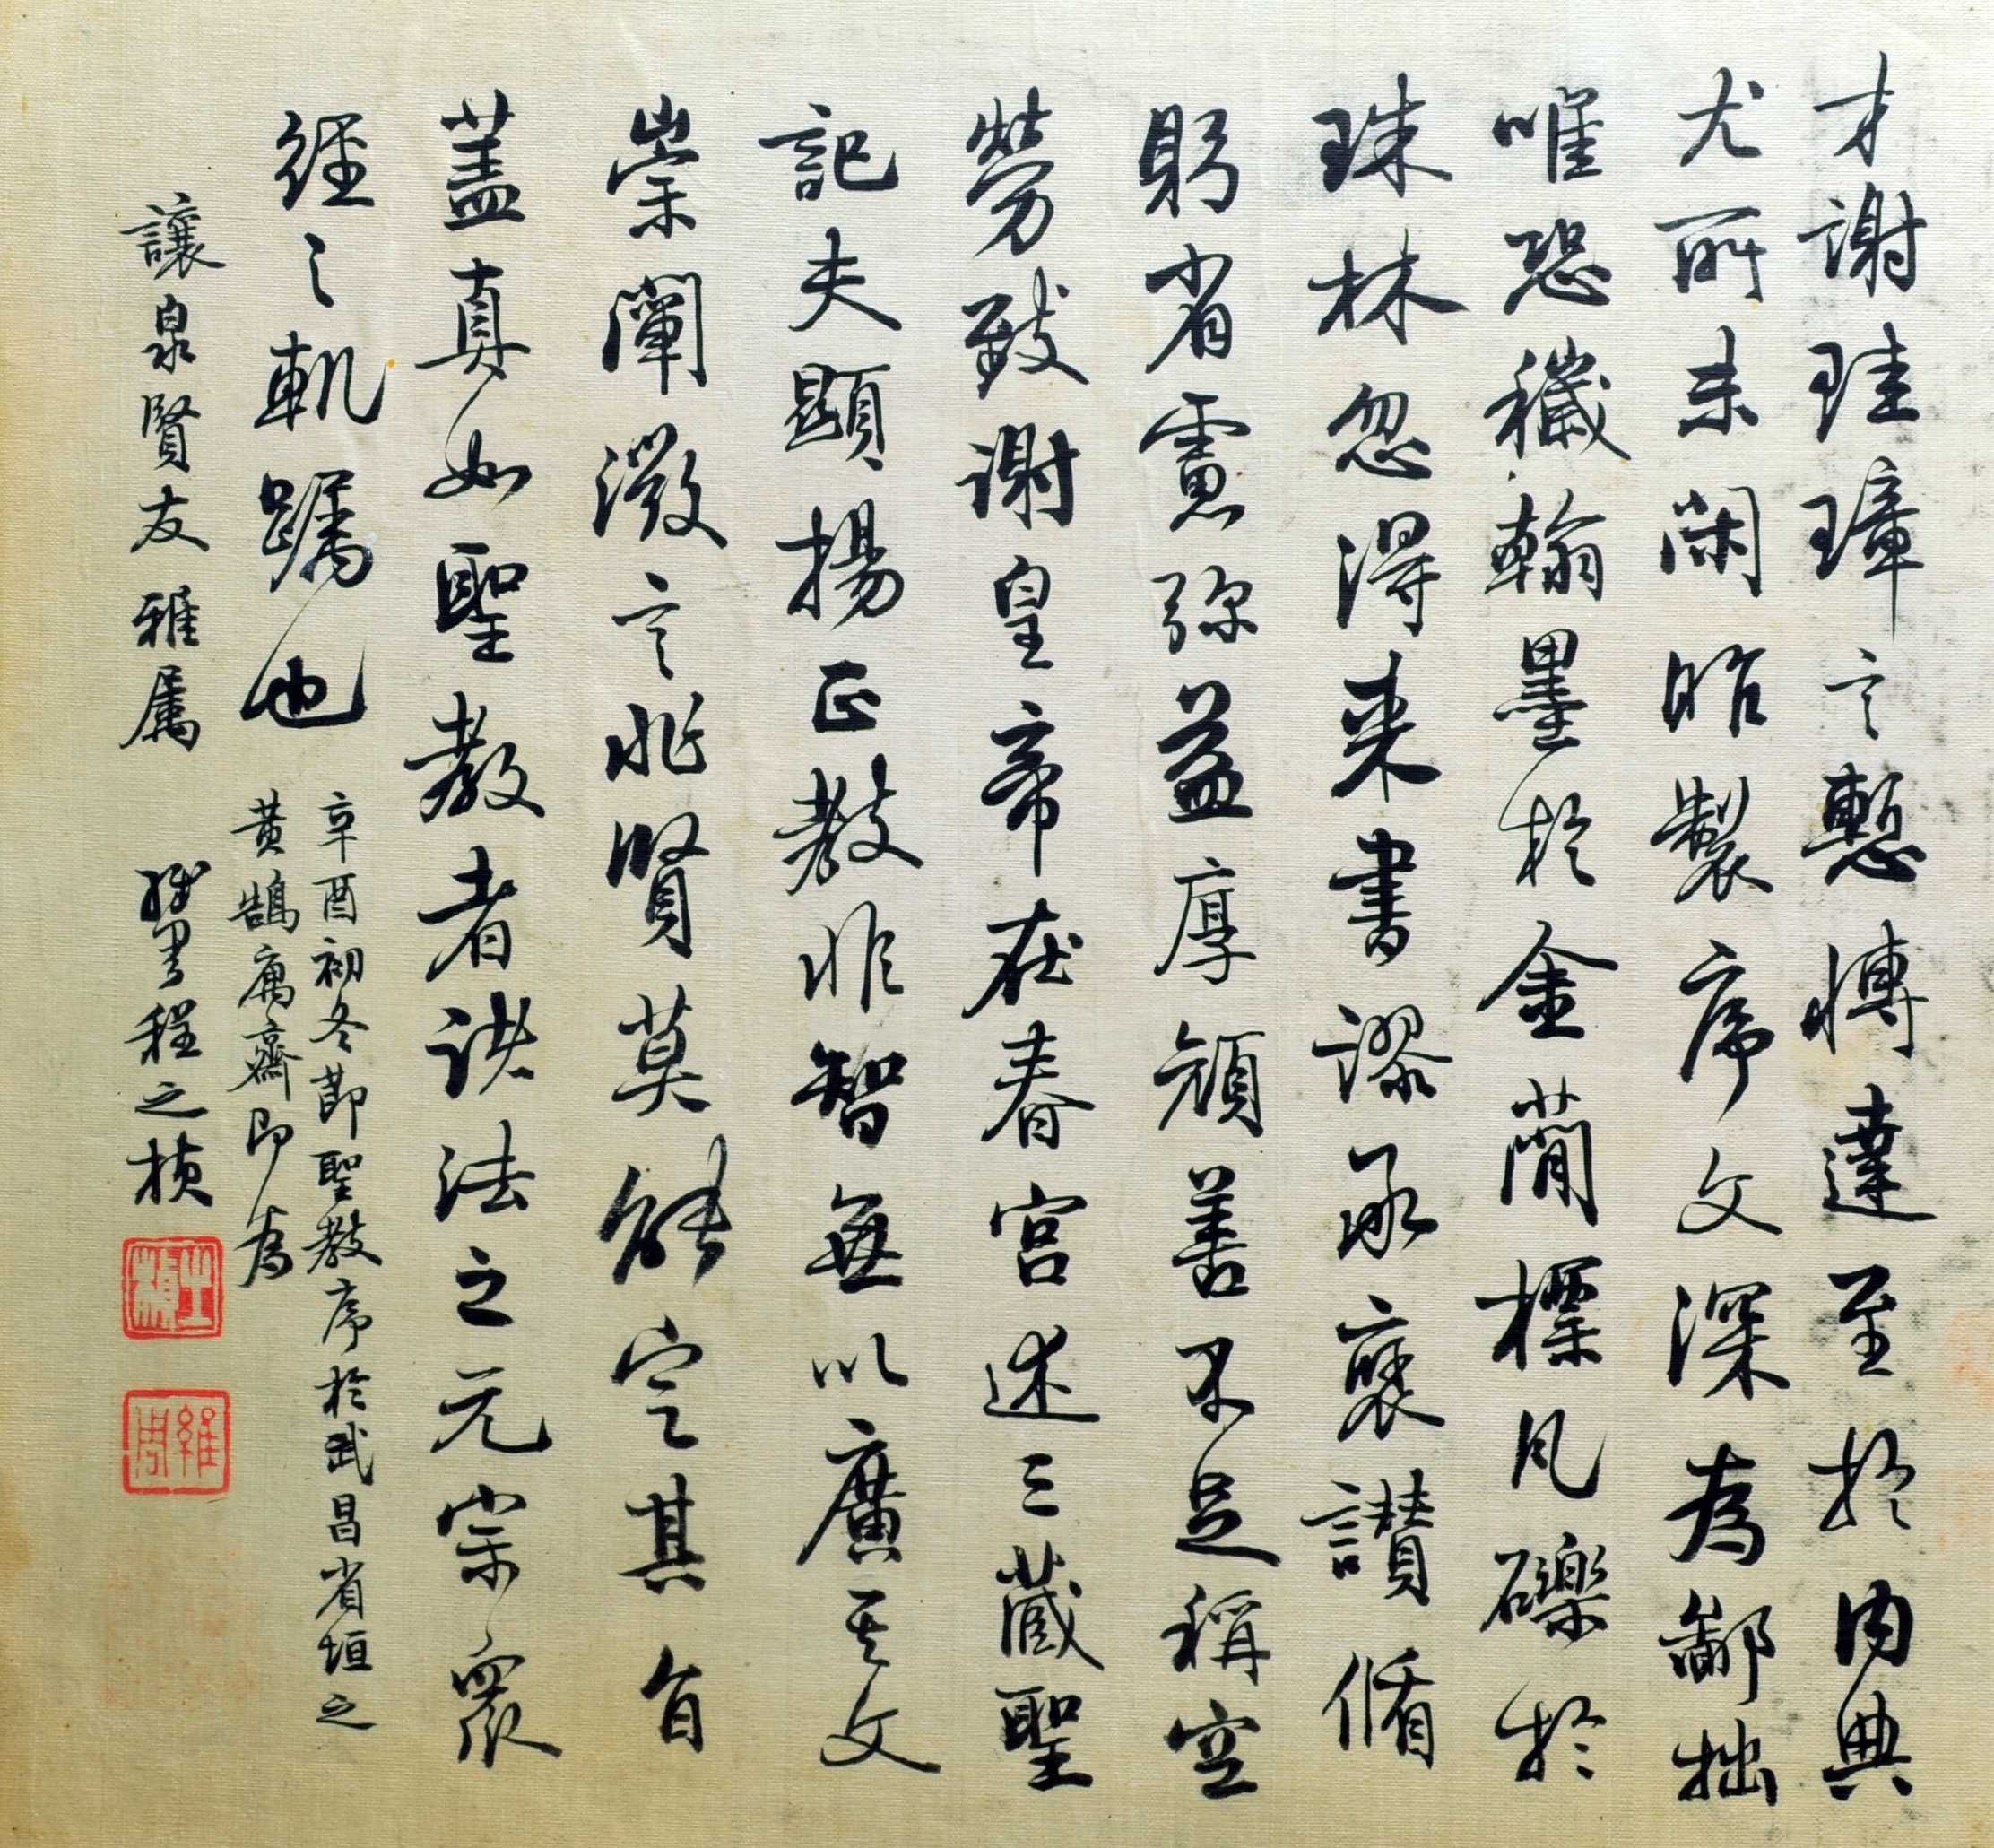 才謝珪璋言慙博達至於內典
尤所未閑昨製序文深為鄙拙
唯恐穢翰墨於金簡標凡礫於
珠林忽得来書謬承褒讃脩
躬省慮弥益厚顔善不足稱空
勞致謝皇帝在春宮述三藏聖
記夫顯揚正教非智無以廣其文
崇闡微言非賢莫能定其旨
蓋真如聖教者諸法之元宗衆
經之軌躅也
辛酉初冬節聖教序於武昌省垣之
黄鵠廎齋即為
讓泉賢友雅屬
程之楨
之楨
維周